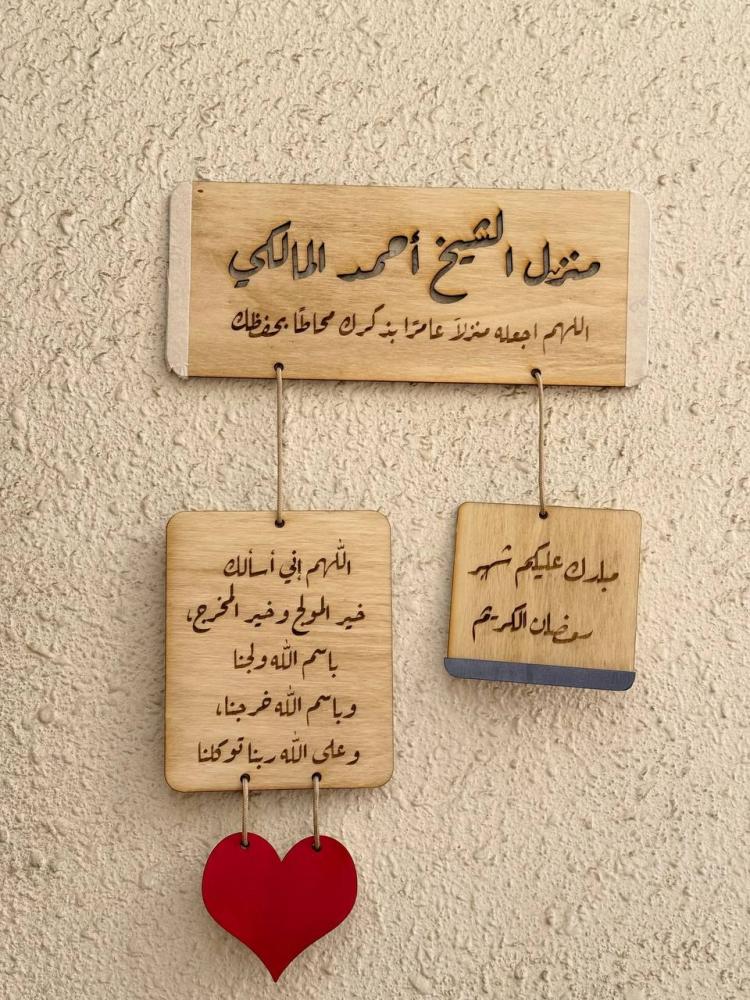 منزل الشيخ أحمد المالكي
اللهم اجعله منزلاً عامرًا بذكرك محاطًا بحفظك
اللّهم إني أسألك
خير المولج وخير المخرج،
باسم اللّه ولجنا
وباسم اللّه خرجنا،
وعلى اللّه ربنا توكلنا
مبارك عليكم شهر
رمضان الكريم